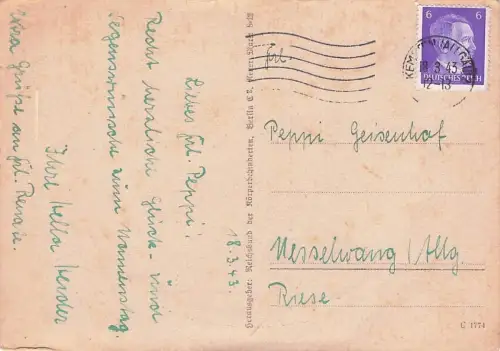 18.3.43.
Liebes Frl. Peppi!
Recht herzliche Glück- und
Segenswünsche zum Namenstag.
Ihre Hella
Grüße an Frl.
Herausgeber: Reichsbund der Körperbehinderten, Berlin
Frl.
Peppi Geisenhof
Nesselwang/Allg.
Riese
6 6
DEUTSCHES REICH
KEMPTEN (ALLGÄU)
18.3.43
12-13
C 1774